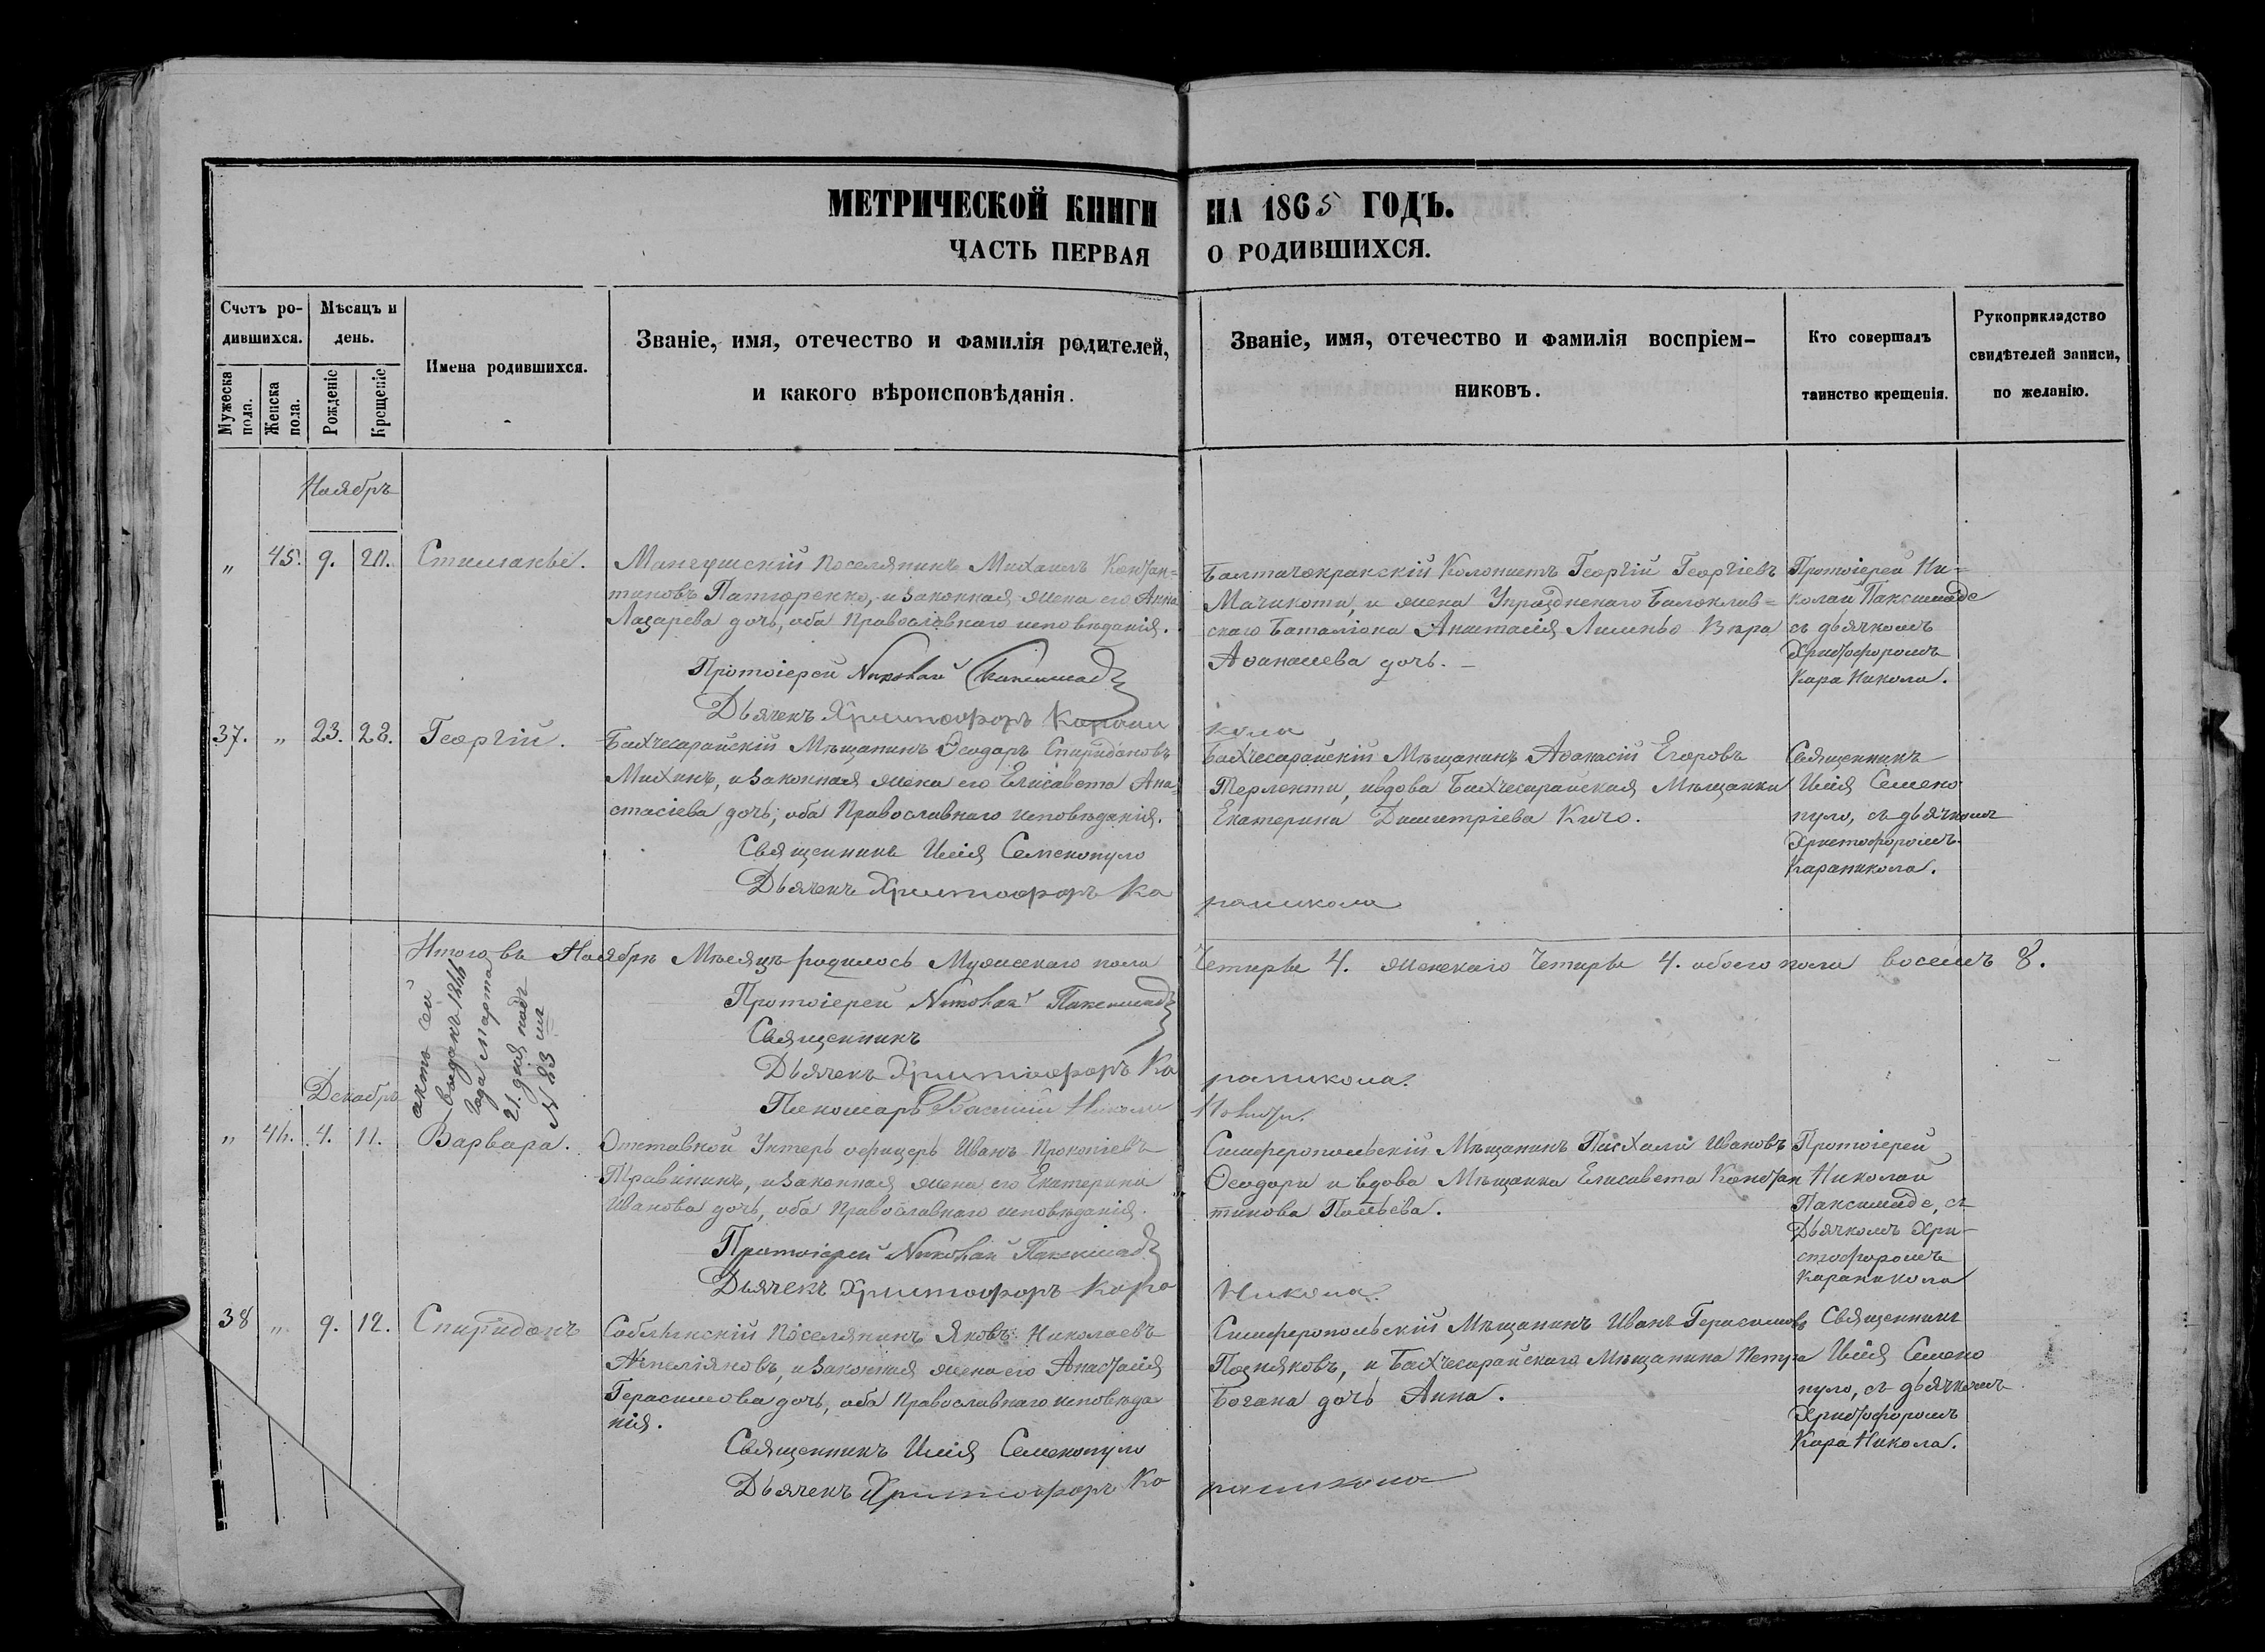 МЕТРИЧЕСКОЙ КНИГИ НА 1865 ГОДЪ.
ЧАСТЬ ПЕРВАЯ О РОДИВШИХСЯ.
Счетъ ро-
дившихся.
Мужеска
пола.
Женска
пола.
Мѣсяцъ и
день.
Рожденіе
Крещеніе
Имена родившихся.
Званіе, имя, отечество и фамилія родителей,
и какого вѣроисповѣданія.
Званіе, имя, отечество и фамилія воспріем-
никовъ.
Кто совершалъ
таинство крещенія.
Рукоприкладство
свидѣтелей записи,
по желанію.
Ноябрь
„ 45. 9.
Мангушскій поселянинъ Михаилъ Констан=
тиновъ Патюренко, и законная жена его Анна
Лазарева дочь, оба православнаго исповѣданія.
Протоіерей Николай
Дьячекъ Христофоръ Карани
кола
Колонистъ Георгій Георгіевъ
Мачикоти, и жена Упраздненаго Балаклав=
скаго Баталіона Анастасія
Аѳанасіева дочь.
Протоіерей Ни=
колай Паксимаде
съ дьячкомъ
Христофоромъ
Кара Никола.
37. „ 23. 28. Георгій.
Бахчесарайскій Мѣщанинъ Ѳеодоръ Спиридоновъ
Михинъ, и законная жена его Елисавета Ана=
стасіева дочь; оба православнаго исповѣданія.
Священникъ Илія Семенопуло
Дьячекъ Христофоръ Ка
раникола
Бахчесарайскій Мѣщанинъ Аѳанасій Егоровъ
Терленти, и вдова Бахчесарайская Мѣщанка
Екатерина Димитріева Кичо.
Священникъ
Илія Семено
пуло, съ дьячкомъ
Христофоромъ
Караникола.
Итого въ Ноябрѣ Мѣсяцѣ родилось Мужескаго пола Четыре 4. женскаго Четыре 4. обоего пола восемь 8.
Протоіерей Николай
Священникъ
Дьячекъ Христофоръ Ка
раникола.
Пономарь Василій
актъ сей
года Марта
21. дня подъ
№ 83
Декабрь
„ 46. 4. 11. Варвара.
Отставной Унтеръ офицеръ Иванъ Прокопіевъ
Травининъ, и законная жена его Екатерина
Иванова дочь, оба православнаго исповѣданія.
Протоіерей Николай
Дьячекъ Христофоръ Кара
Никола.
Симферопольскій Мѣщанинъ Пасхали Ивановъ
Ѳеодори и вдова Мѣщанка Елисавета Констан
тинова
Протоіерей
Николай
Паксимаде, съ
Дьячкомъ Хри-
стофоромъ
Караникола
38 „ 9. 12. Спиридонъ
Саблынскій поселянинъ Яковъ Николаевъ
и законная жена его Анастасія
Герасимова дочь, оба православнаго исповѣда
нія.
Священникъ Илія Семенопуло
Дьячекъ Христофоръ Ка
раникола
Симферопольскій Мѣщанинъ Иванъ Герасимовъ
Позняковъ, и Бахчесарайскаго Мѣщанина Петра
Богана дочь Анна.
Священникъ
Илія Семено
пуло, съ дьячкомъ
Христофоромъ
Кара Никола.